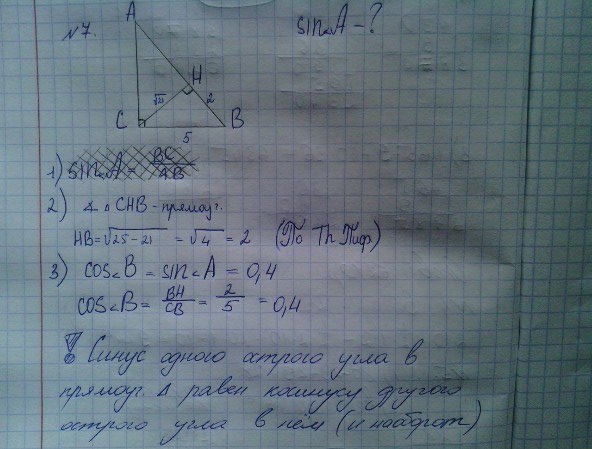 №7.
sin∠A - ?
A
H
√21
2
C
B
5
1) sin∠A = BC/AB
2) ∡ △ CHB - прямоуг.
HB = √25-21 = √4 = 2 (По Th Пиф)
3) cos∠B = sin∠A = 0,4
cos∠B = BH/CB = 2/5 = 0,4
! Синус одного острого угла в
прямоуг. △ равен косинусу другого
острого угла в нём (и наоборот)